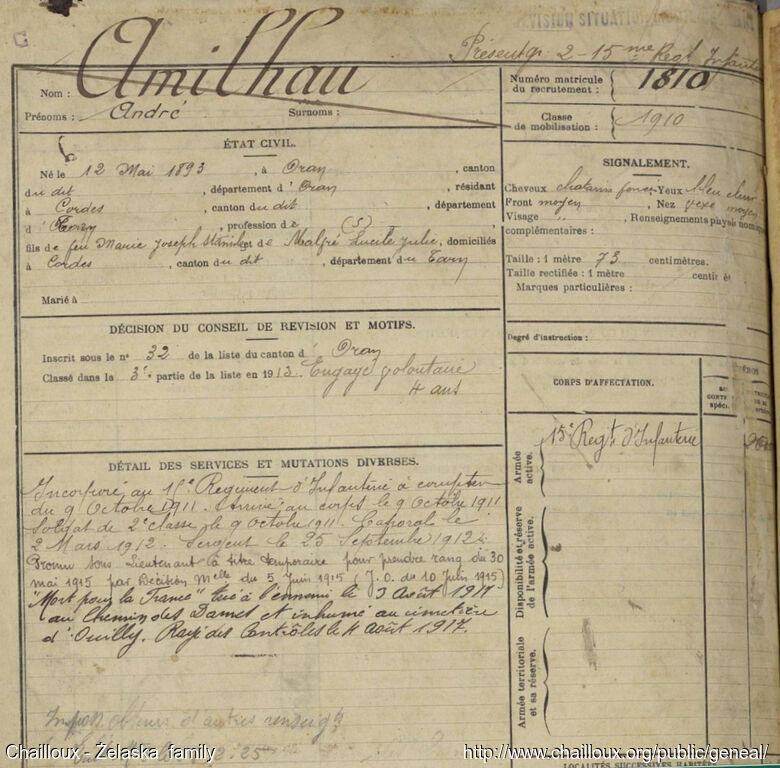 REVISION SITUATION
Présent 2 - 15me Regt Infanterie
Nom : Amilhau
Prénoms : André Surnoms :
Numéro matricule
du recrutement : 1810
Classe
de mobilisation : 1910
ÉTAT CIVIL.
Né le 12 Mai 1893, à Oran, canton
du dit, département d'Oran, résidant
à Cordes, canton du dit, département
d, profession de (S)
fils de feu Marie Joseph et de Malfré Lucile Julie, domiciliés
à Cordes, canton du dit, département du Tarn
Marié à
SIGNALEMENT.
Cheveux chatains foncés Yeux bleu clair
Front moyen, Nez vexe moyen
Visage ", Renseignements physionomiques
complémentaires :
Taille : 1 mètre 73 centimètres.
Taille rectifiée : 1 mètre centim
Marques particulières :
Degré d'instruction :
DÉCISION DU CONSEIL DE REVISION ET MOTIFS.
Inscrit sous le n° 32 de la liste du canton d'Oran
Classé dans la 3e partie de la liste en 1913. Engagé volontaire
4 ans
CORPS D'AFFECTATION.
Armée
active.
15e Regt d'Infanterie
Disponibilité et réserve
de l'armée active.
Armée territoriale
et sa réserve.
DÉTAIL DES SERVICES ET MUTATIONS DIVERSES.
Incorporé au 15e Regiment d'Infanterie à compter
du 9 Octobre 1911. Arrivé au corps le 9 Octobre 1911
Soldat de 2e classe le 9 Octobre 1911. Caporal le
2 Mars 1912. Sergent le 25 Septembre 1912.
Promu Sous Lieutenant à titre temporaire pour prendre rang du 30
mai 1915 par Décision Melle du 5 Juin 1915 (J.O. du 10 Juin 1915)
"Mort pour la France" tué à l'ennemi le 3 Août 1917
au Chemin des Dames et inhumé au cimetière
d'Ouilly. Rayé des Contrôles le 4 août 1917.
d'autres renseigts
LOCALITÉS SUCCESSIVES HABITÉES
Chailloux - Želaska family
http://www.chailloux.org/public/geneal/